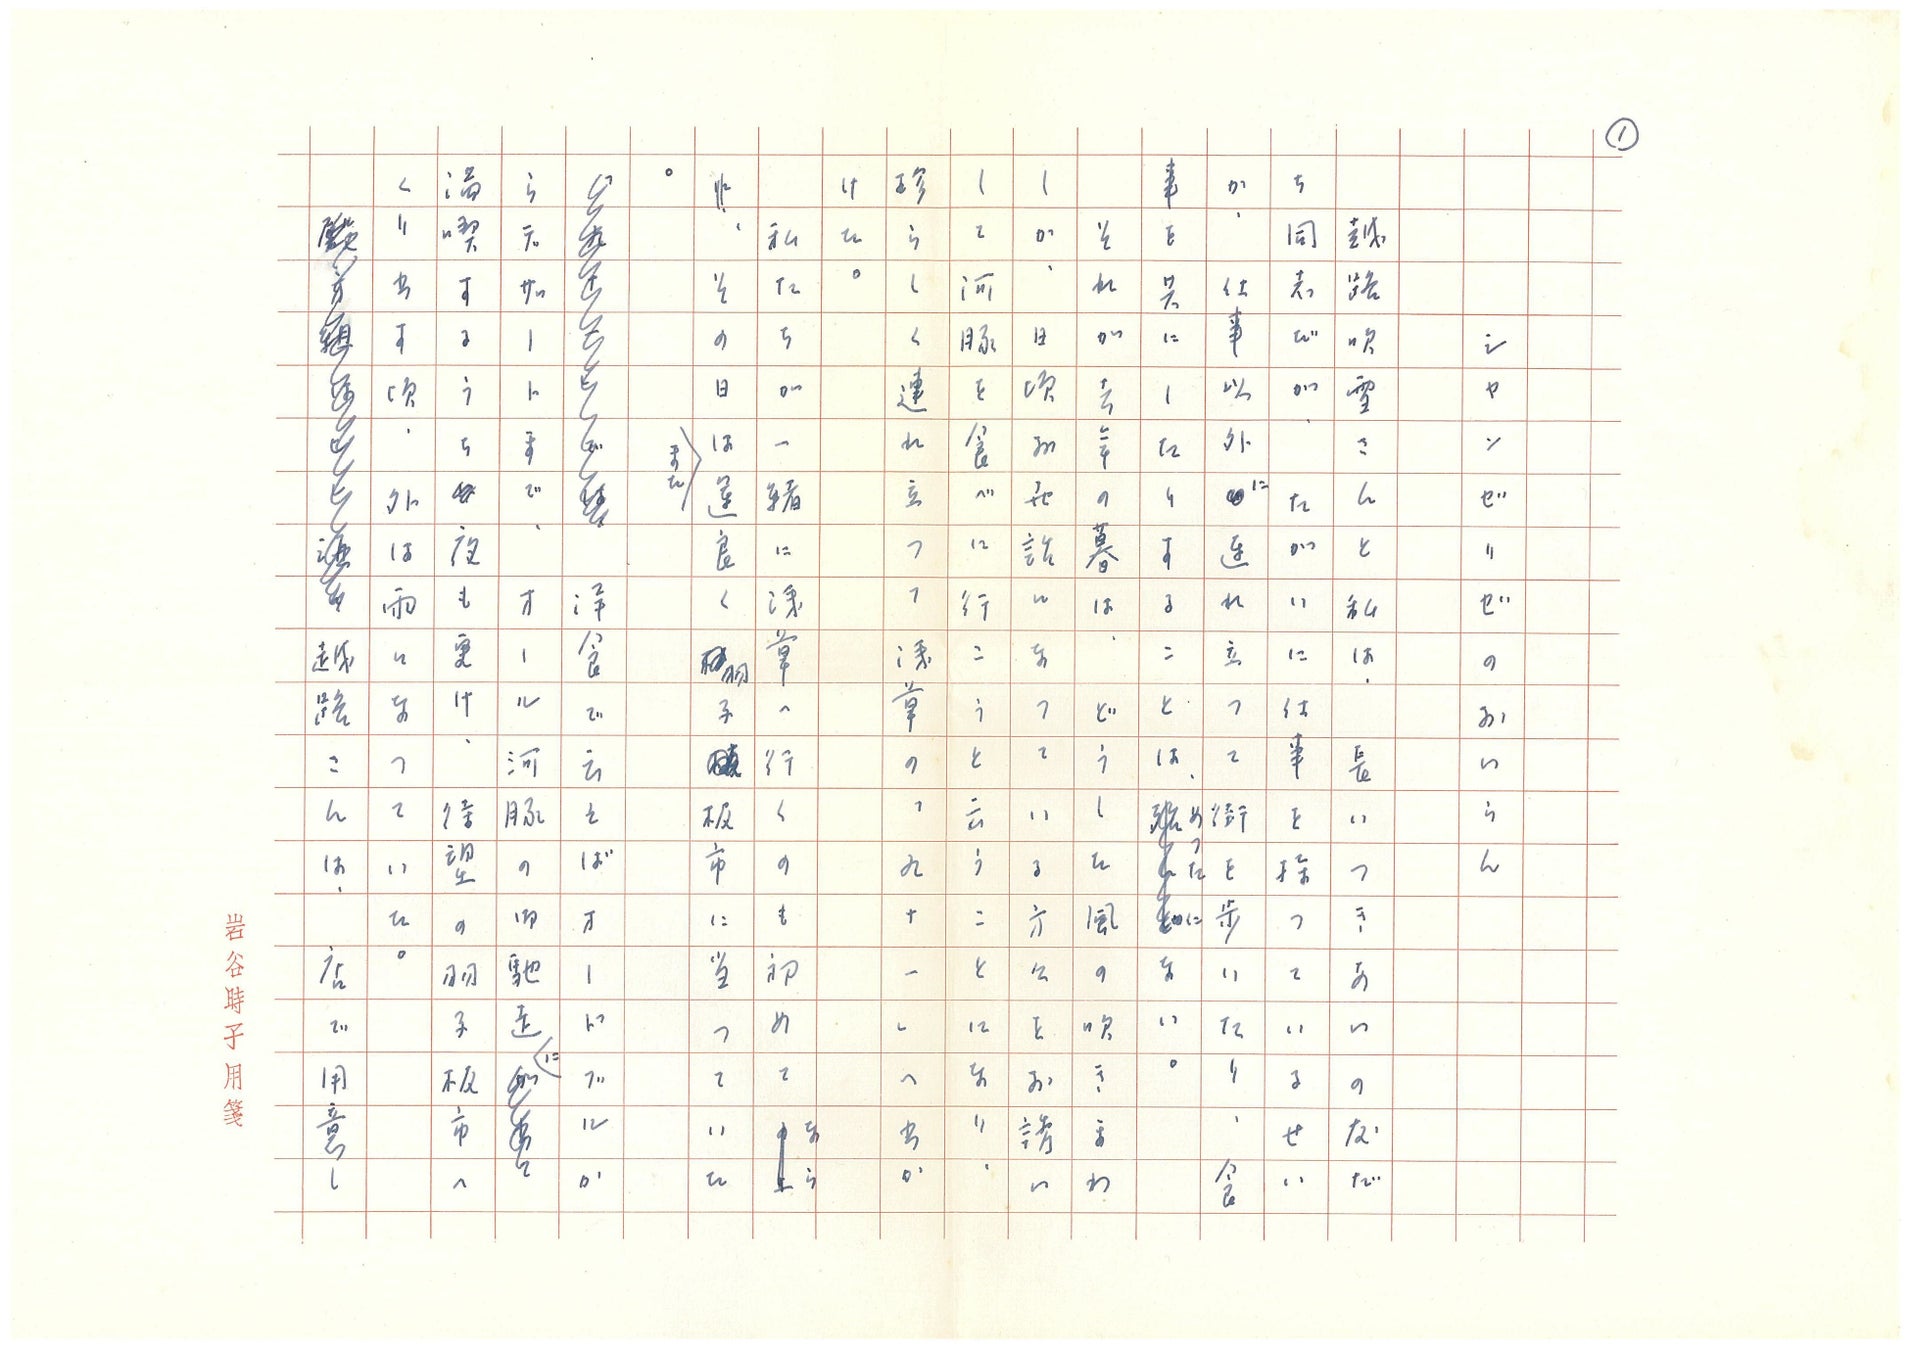 ①
シャンゼリゼのおいらん
越路吹雪さんと私は、長いつきあいの友だ
ち同志だが、たがいに仕事を持っているせい
か、仕事以外に連れ立って街を歩いたり、食
事を共にしたりすることは、めったにない。
それが去年の暮は、どうした風の吹きまわ
しか、日頃お世話になっている方々をお誘い
して河豚を食べに行こうと云うことになり、
珍らしく連れ立って浅草の「」へ出か
けた。
私たちが一緒に浅草へ行くのも初めてなら
ば、その日はまた運良く羽子板市に当っていた
。
洋食で云えばオードブルか
らデザートまで、オール河豚の御馳走に
満喫するうち夜も更け、待望の羽子板市へ
くり出す頃、外は雨になっていた。
越路さんは、店で用意し
岩谷時子用箋